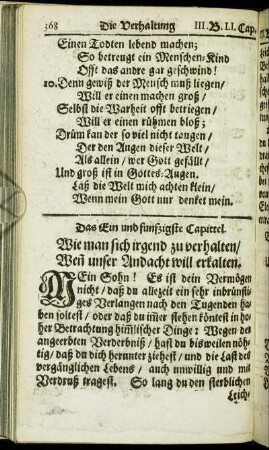 368 Die Verhaltung III. B. LI. Cap.
Einen Todten lebend machen;
So betreugt ein Menschen-Kind
Offt das andre gar geschwind!
10. Denn gewiß der Mensch muß liegen/
Will er einen machen groß/
Selbst die Warheit offt betriegen/
Will er einen rühmen bloß;
Drüm kan der so viel nicht taugen/
Der den Augen dieser Welt/
Als allein/ wer Gott gefällt/
Und groß ist in Gottes-Augen.
Laß die Welt mich achten klein/
Wenn mein Gott nur denket mein.
Das Ein und funfzigste Capittel.
Wie man sich irgend zu verhalten/
Weñ unser Andacht will erkalten.
MEin Sohn! Es ist dein Vermögen
nicht/ daß du allezeit ein sehr inbrünsti-
ges Verlangen nach den Tugenden ha-
ben soltest/ oder daß du im̃er stehen köntest in ho-
her Betrachtung him̃lischer Dinge: Wegen des
angeerbten Verderbniß/ hast du bisweilen nöh-
tig/ daß du dich herunter ziehest/ und die Last des
vergänglichen Lebens/ auch unwillig und mit
Verdruß tragest. So lang du den sterblichen
Leich-